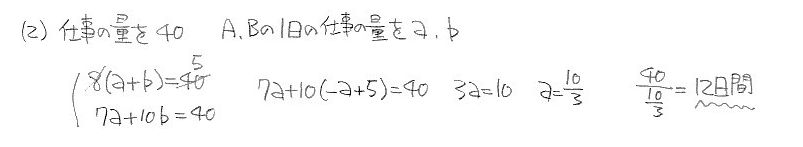 (2) 仕事の量を40 A、Bの1日の仕事の量をa、b
8(a+b)=40 5
7a+10b=40 7a+10(-a+5)=40 3a=10 a=10/3 40/(10/3)=12日間